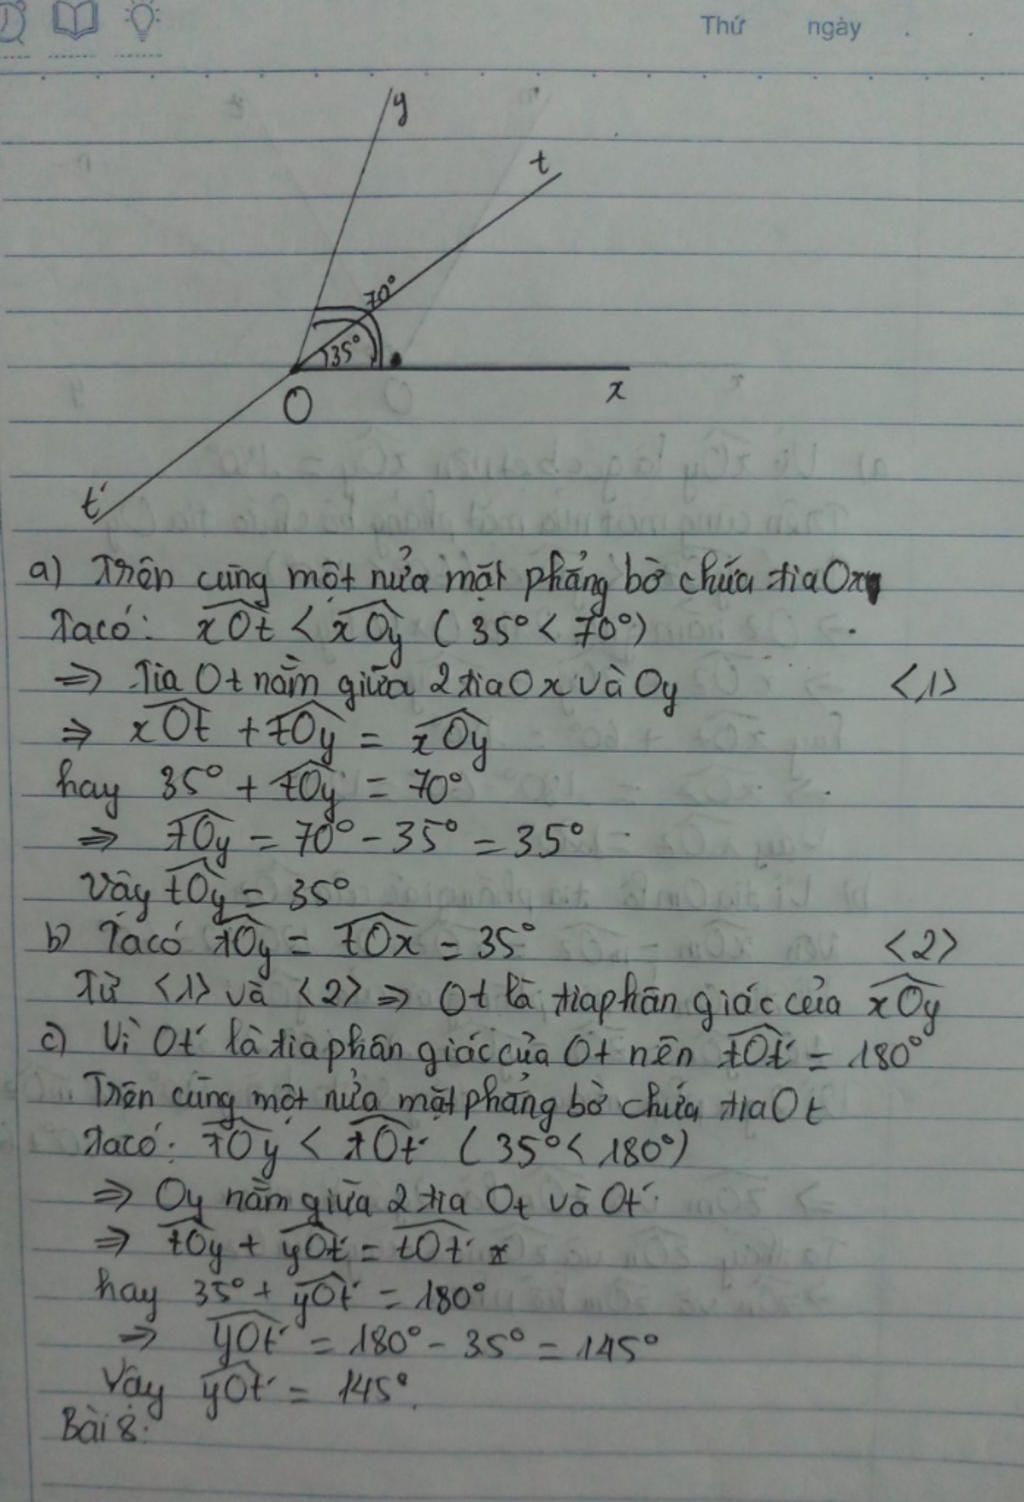 Thứ ngày
y
t
70°
35°
O
x
t'
a) Trên cùng một nửa mặt phẳng bờ chứa tia Ox
Ta có: xOt < xOy (35° < 70°)
⇒ Tia Ot nằm giữa 2 tia Ox và Oy <1>
⇒ xOt + tOy = xOy
hay 35° + tOy = 70°
⇒ tOy = 70° - 35° = 35°
Vậy tOy = 35°
b) Ta có tOy = tOx = 35° <2>
Từ <1> và <2> ⇒ Ot là tia phân giác của xOy
c) Vì Ot' là tia phân giác của Ot nên tOt' = 180°
Trên cùng một nửa mặt phẳng bờ chứa tia Ot
Ta có: tOy < tOt' (35° < 180°)
⇒ Oy nằm giữa 2 tia Ot và Ot'
⇒ tOy + yOt' = tOt'
hay 35° + yOt' = 180°
⇒ yOt' = 180° - 35° = 145°
Vậy yOt' = 145°.
Bài 8: